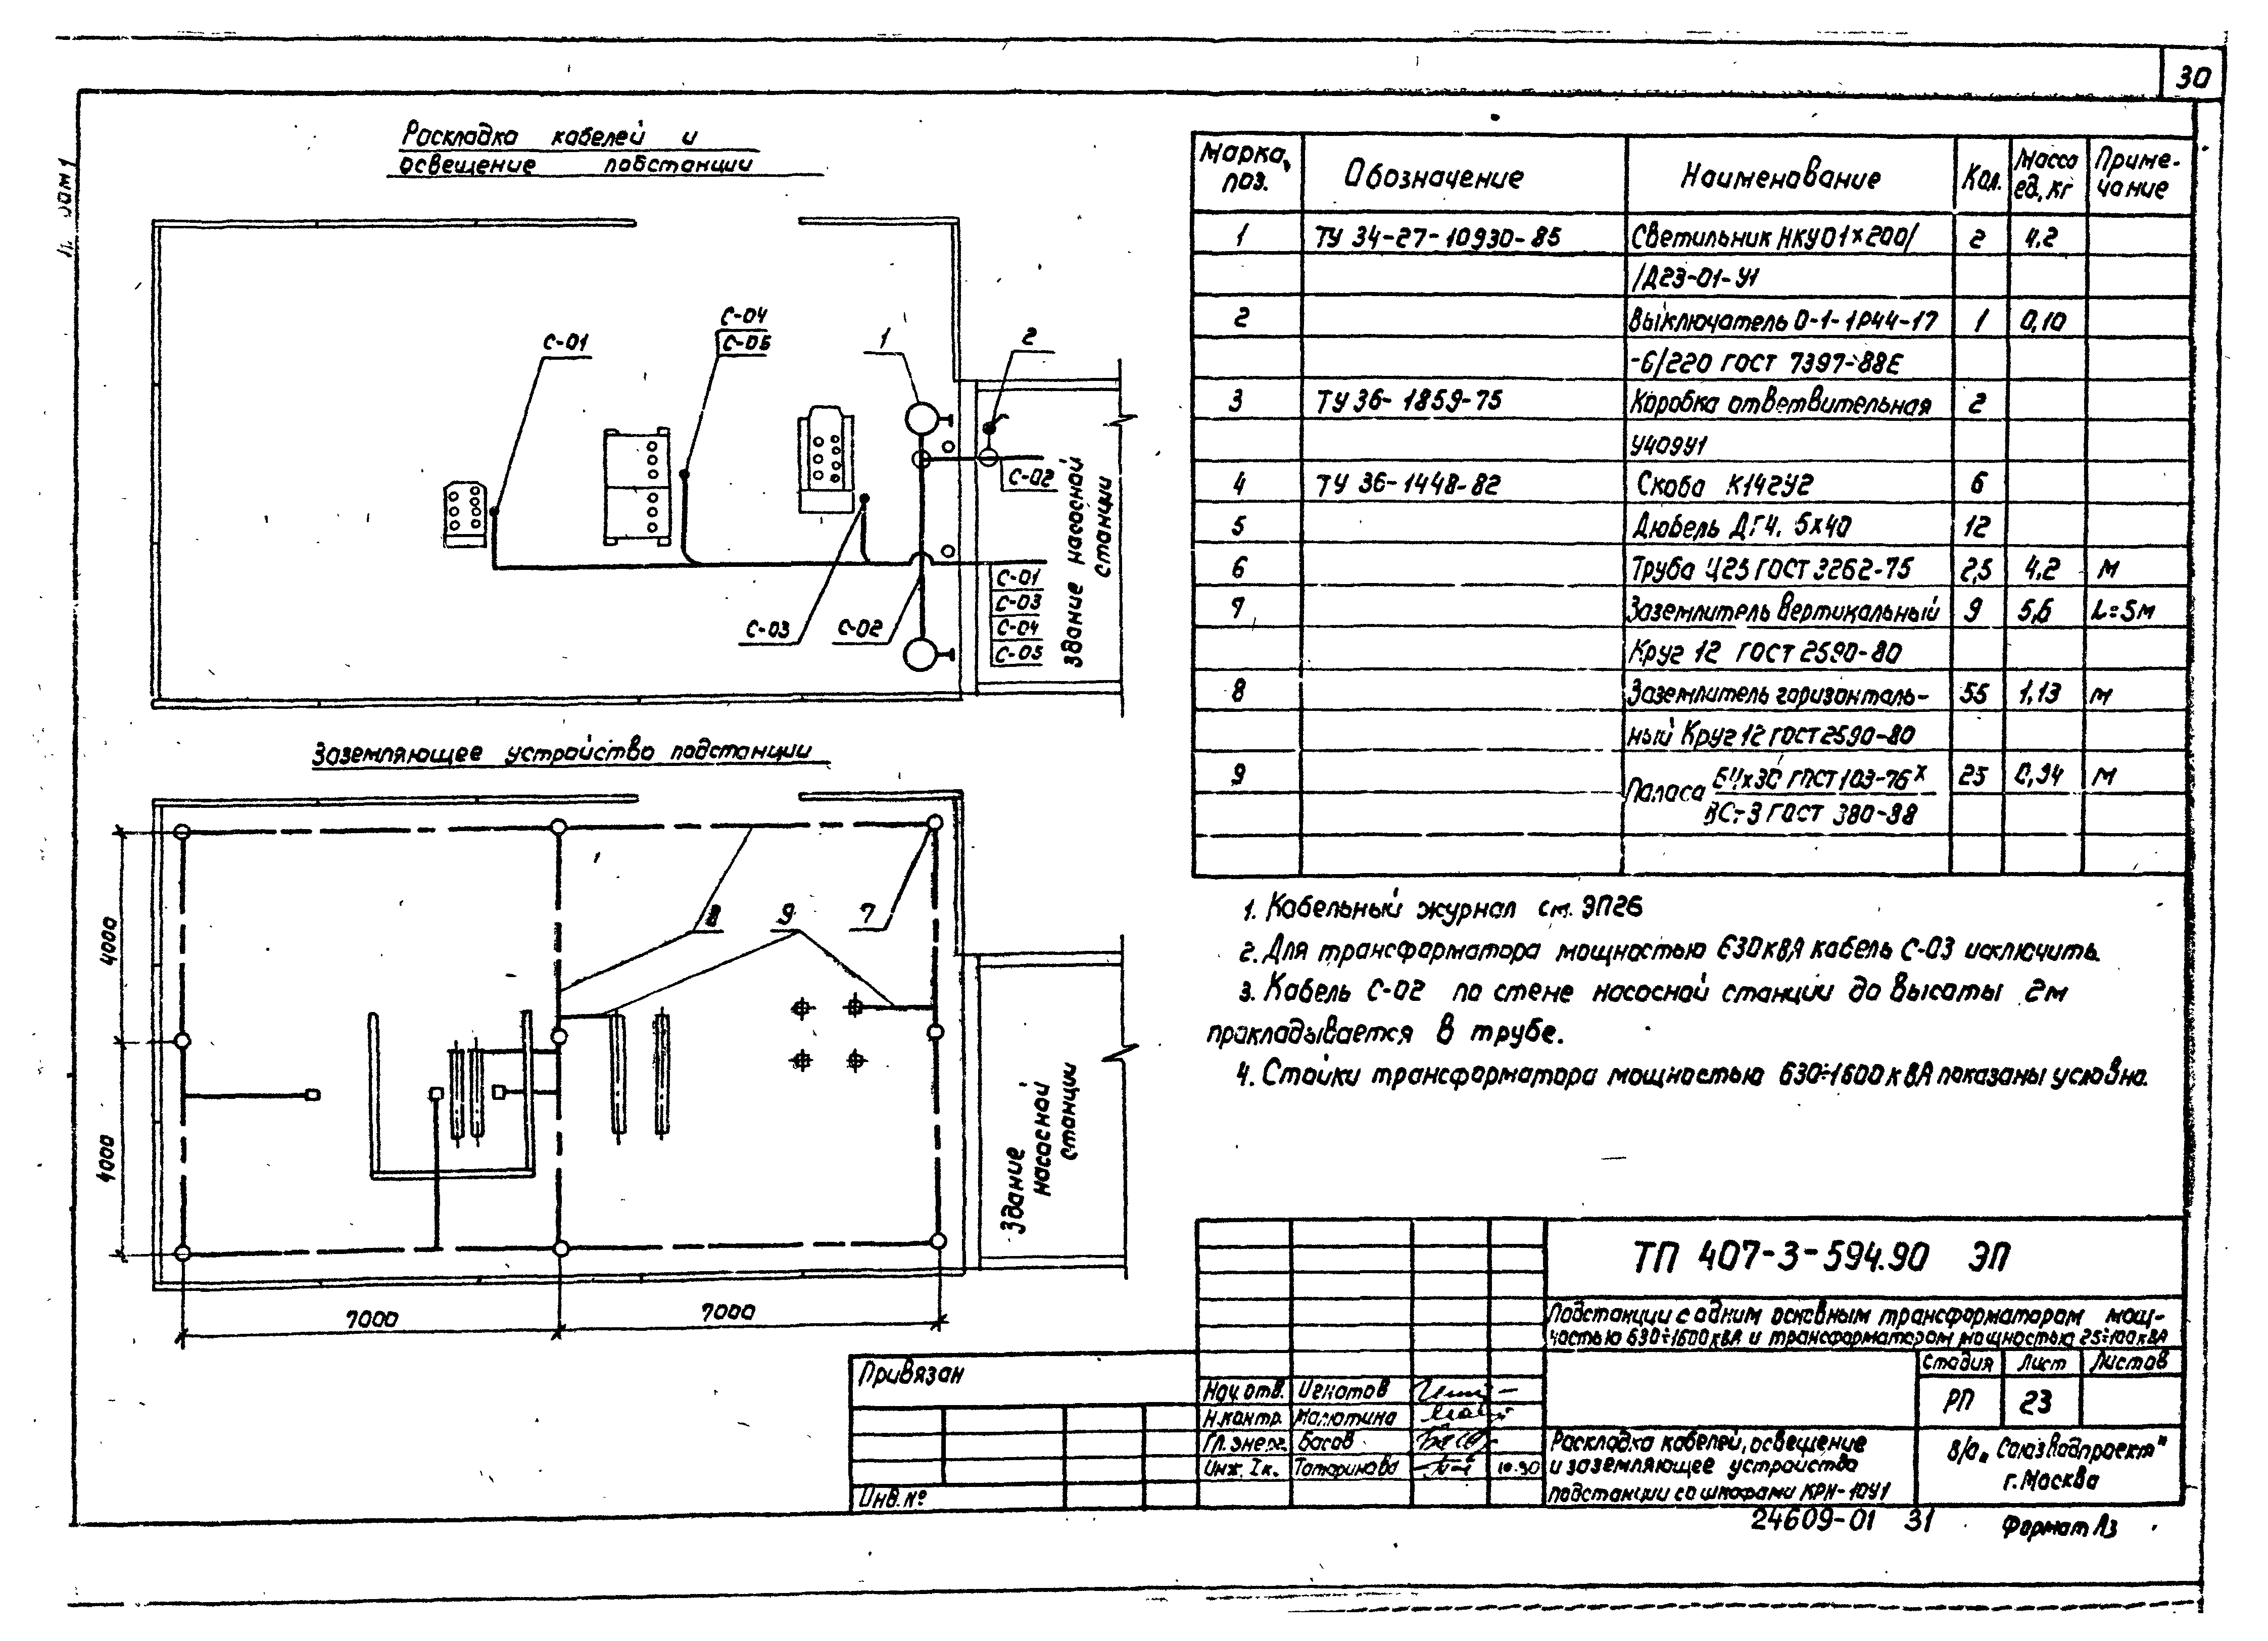 30
Раскладка кабелей и
освещение подстанции
С-01
С-04
С-05
1
2
С-02
С-03
С-02
С-01
С-03
С-04
С-05
Здание насосной
станции
Заземляющее устройство подстанции
8
9
7
4000
4000
7000
7000
Здание
насосной
станции
Марка, поз.
Обозначение
Наименование
Кол.
Масса ед, кг
Приме-чание
1 ТУ 34-27-10930-85 Светильник НКУ01х200/ 2 4,2
/Д23-01-У1
2 Выключатель 0-1-1Р44-17 1 0,10
-6/220 ГОСТ 7397-88Е
3 ТУ 36-1859-75 Коробка ответвительная 2
У409У1
4 ТУ 36-1448-82 Скоба К142У2 6
5 Дюбель ДГ4. 5х40 12
6 Труба Ц25 ГОСТ 3262-75 2,5 4,2 м
7 Заземлитель вертикальный 9 5,6 L=5м
Круг 12 ГОСТ 2590-80
8 Заземлитель горизонталь- 55 1,13 м
ный Круг 12 ГОСТ 2590-80
9 Полоса Б4х30 ГОСТ 103-76х 25 0,94 м
ВСт3 ГОСТ 380-88
1. Кабельный журнал см. ЭП26
2. Для трансформатора мощностью 630кВА кабель С-03 исключить.
3. Кабель С-02 по стене насосной станции до высоты 2м
прокладывается в трубе.
4. Стойки трансформатора мощностью 630÷1600 кВА показаны условно.
ТП 407-3-594.90 ЭП
Подстанции с одним основным трансформатором мощ-
ностью 630÷1600кВА и трансформатором мощностью 25÷100кВА
Стадия Лист Листов
РП 23
Привязан
Инв. №
Нач. отв. Игнатов
Н.контр. Малютина
Гл. энерг. Басов
Инж. Iк. Татаринова 10.90
Раскладка кабелей, освещение
и заземляющее устройство
подстанции со шкафами КРН-10У1
В/О „Союзводпроект"
г. Москва
24609-01 31
Формат А3